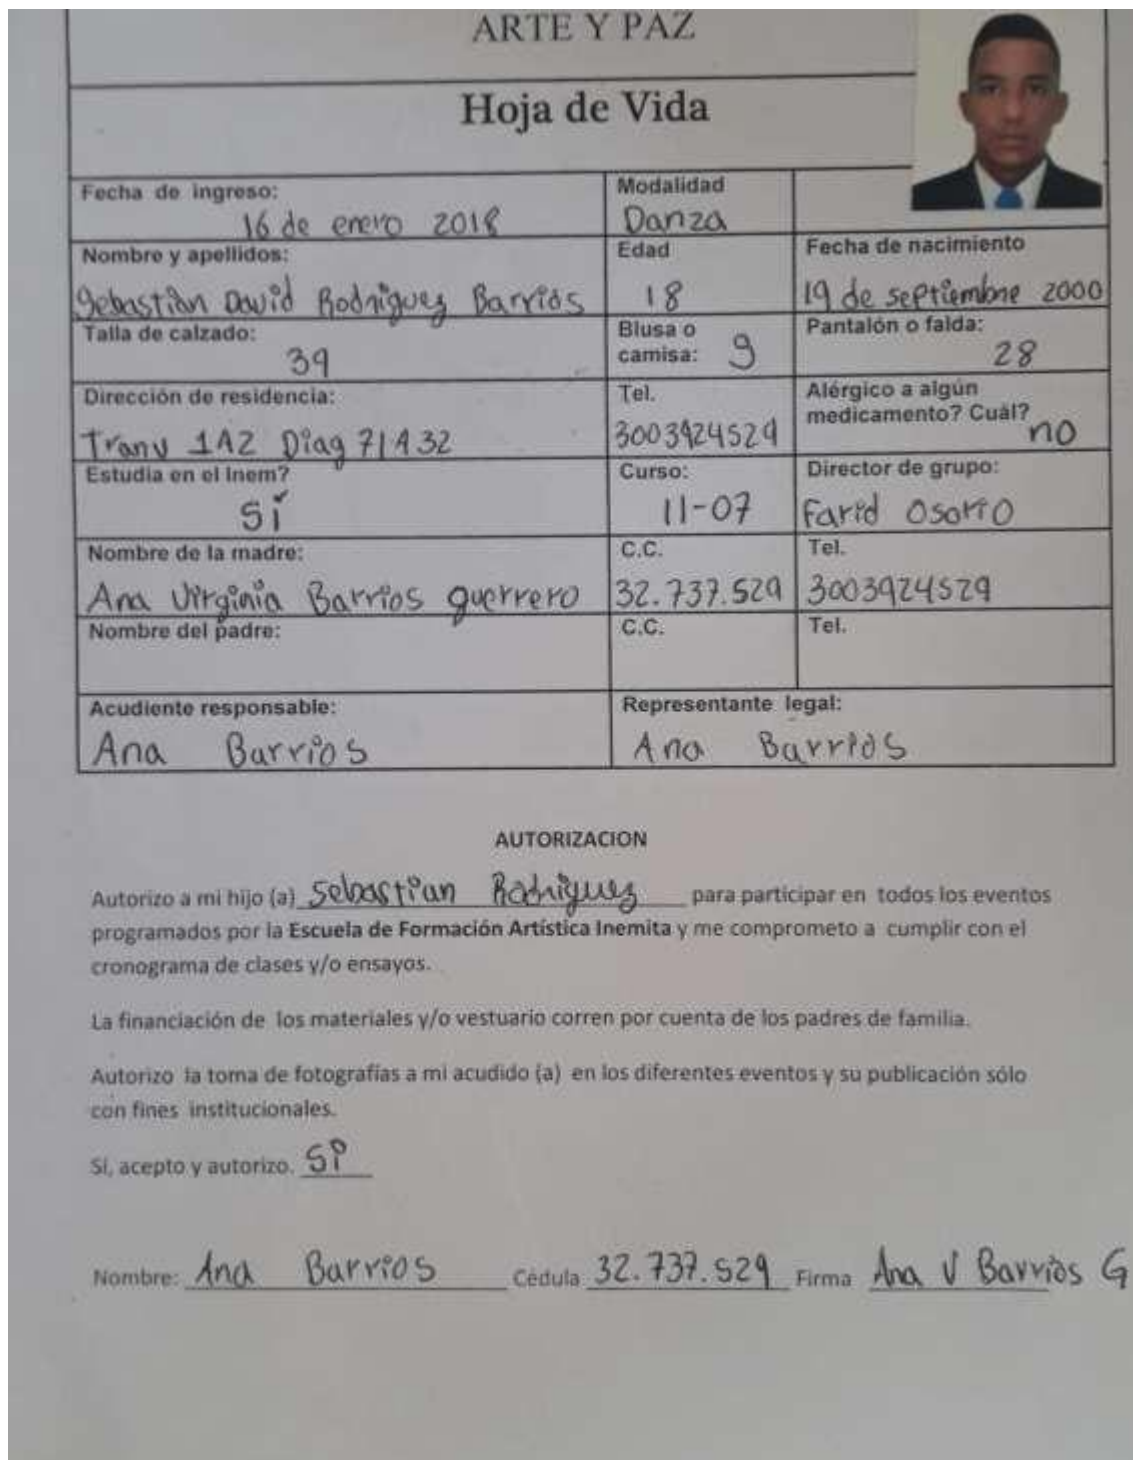 ARTE Y PAZ
Hoja de Vida
Fecha de ingreso:
16 de enero 2018
Modalidad
Danza
Nombre y apellidos:
Sebastian David Rodriguez Barrios
Edad
18
Fecha de nacimiento
19 de septiembre 2000
Talla de calzado:
39
Blusa o
camisa: 9
Pantalón o falda:
28
Dirección de residencia:
Tranv 1A2 Diag 71A32
Tel.
3003924529
Alérgico a algún
medicamento? Cuál?
no
Estudia en el Inem?
Sí
Curso:
11-07
Director de grupo:
Farid Osorio
Nombre de la madre:
Ana Virginia Barrios guerrero
C.C.
32.737.529
Tel.
3003924529
Nombre del padre:
C.C.
Tel.
Acudiente responsable:
Ana Barrios
Representante legal:
Ana Barrios
AUTORIZACION
Autorizo a mi hijo (a) Sebastian Rodriguez para participar en todos los eventos
programados por la Escuela de Formación Artística Inemita y me comprometo a cumplir con el
cronograma de clases y/o ensayos.
La financiación de los materiales y/o vestuario corren por cuenta de los padres de familia.
Autorizo la toma de fotografías a mi acudido (a) en los diferentes eventos y su publicación sólo
con fines institucionales.
Si, acepto y autorizo. Si
Nombre: Ana Barrios Cédula 32.737.529 Firma Ana V Barrios G